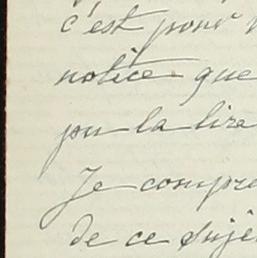 c'est pour
notice que
pu la lire
Je compre
de ce suje